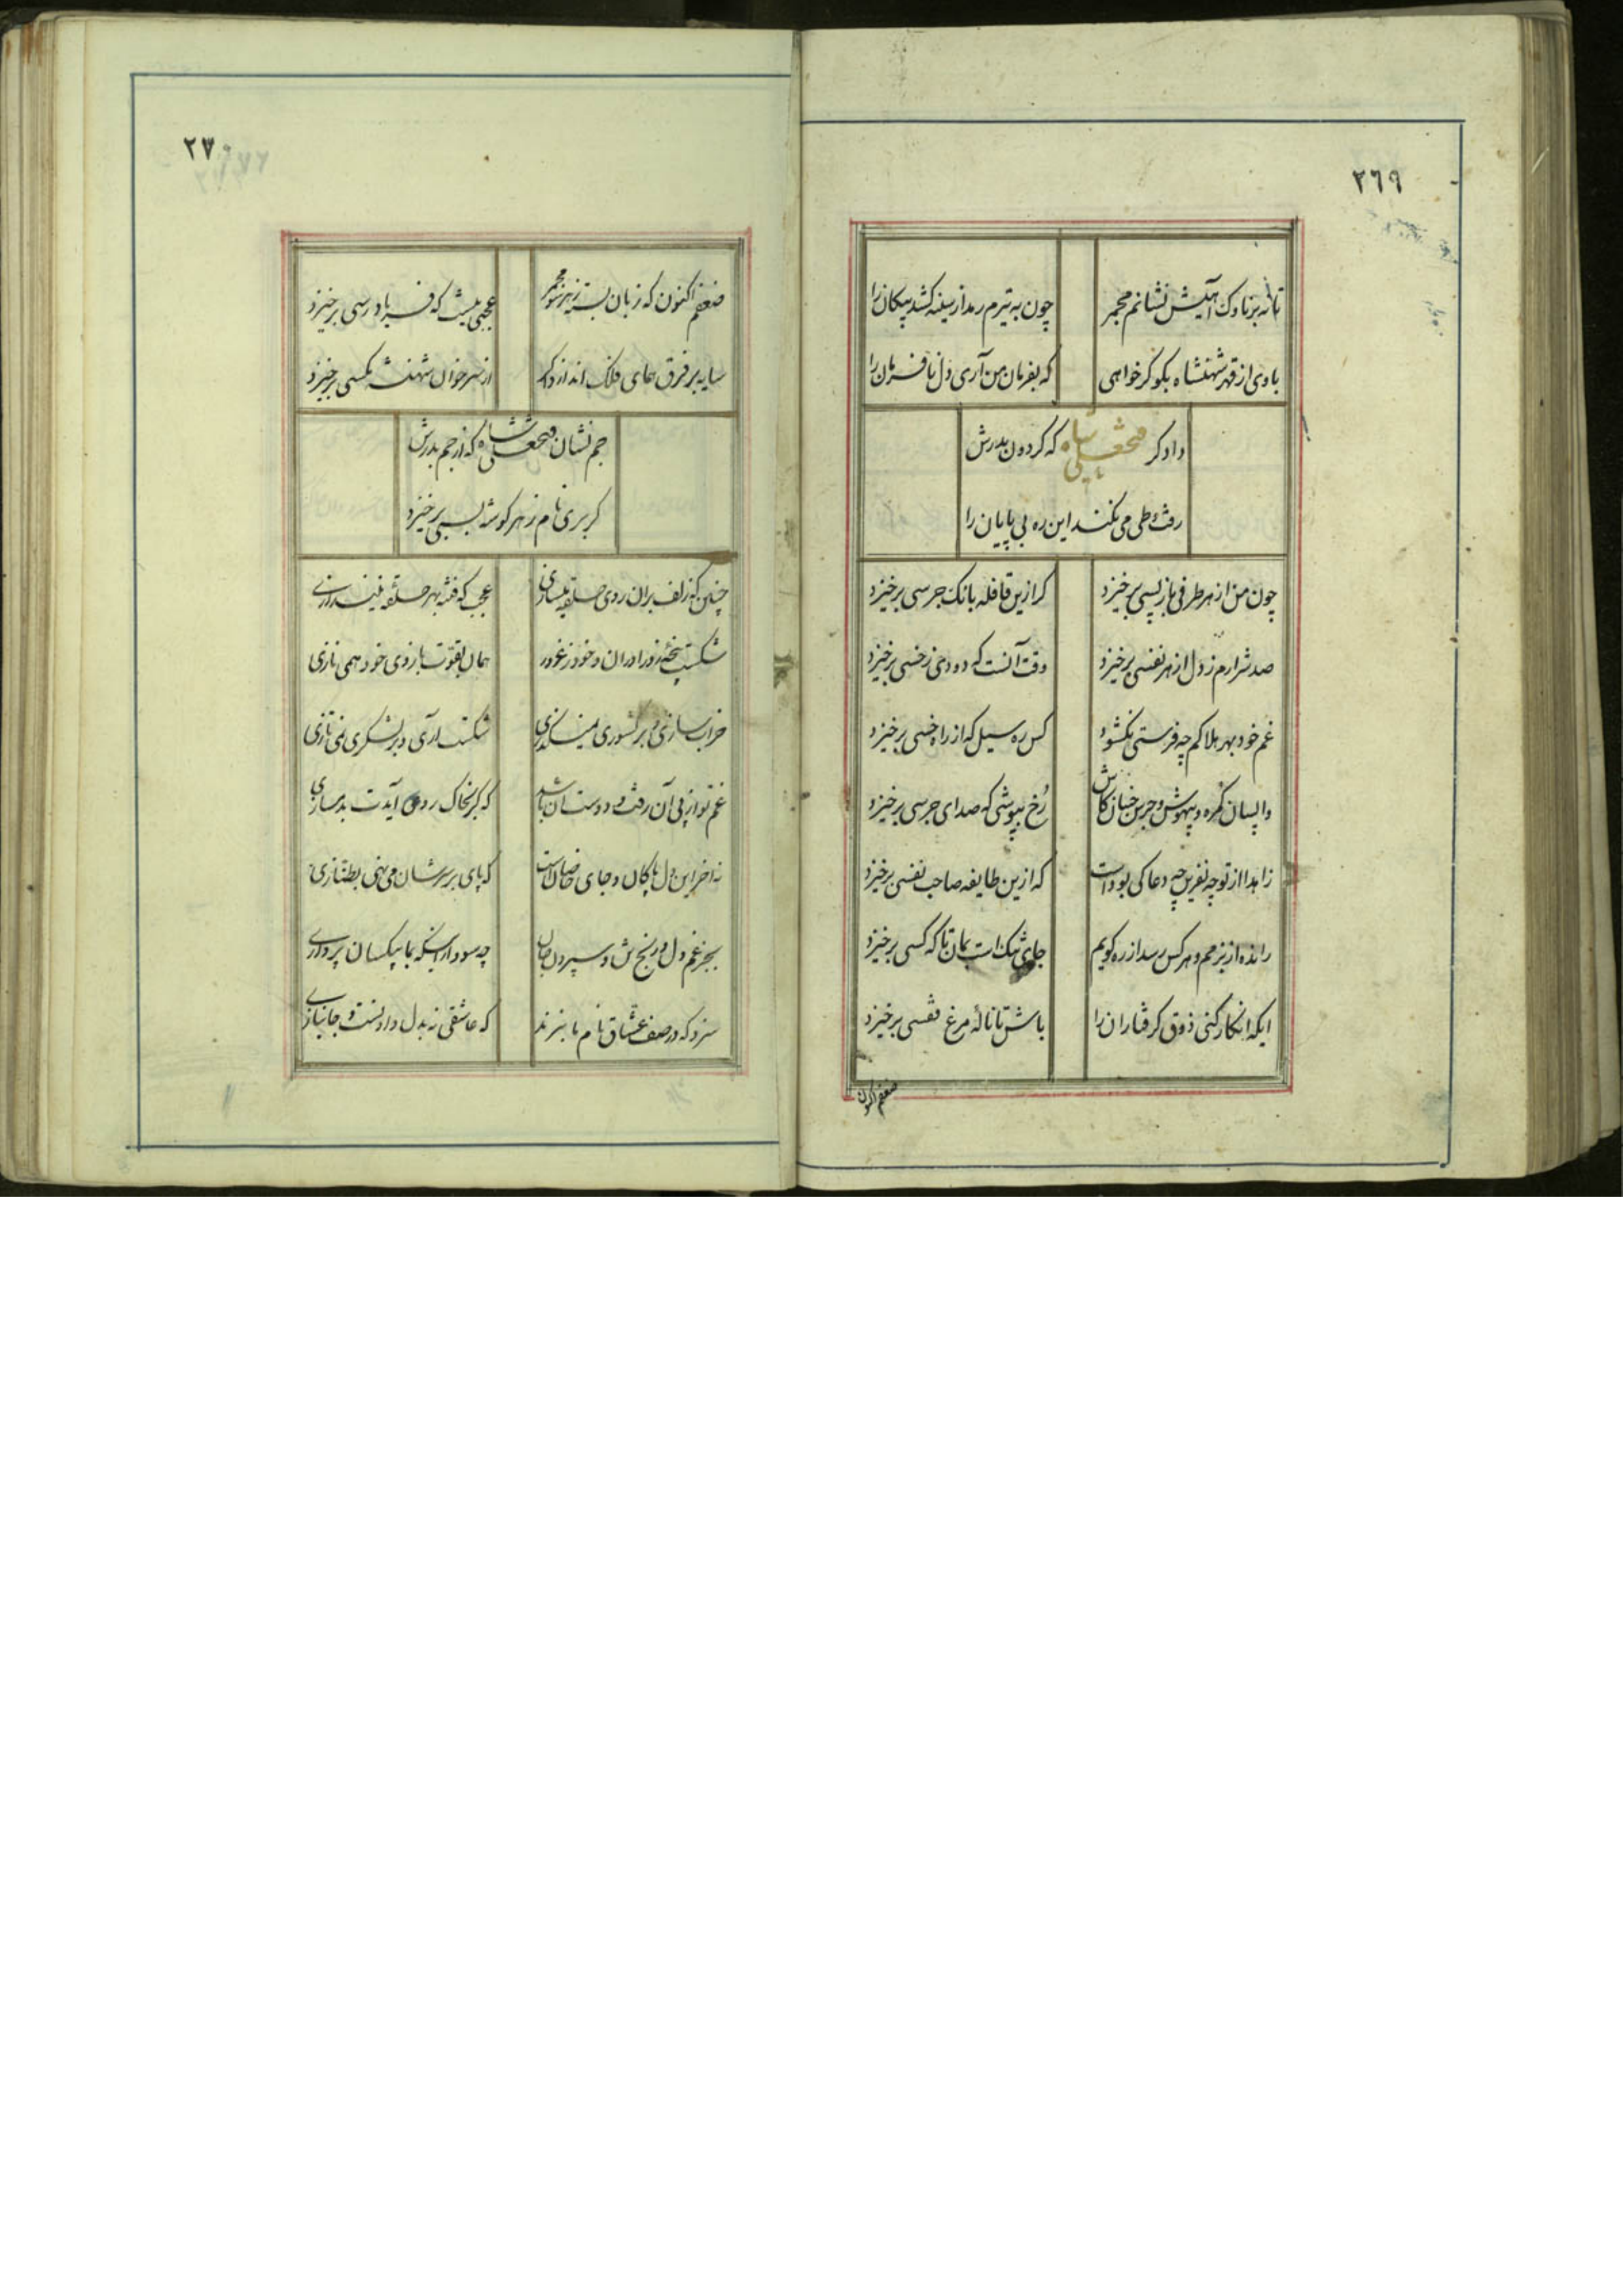 ٢٦٩
تا نه بر ناوک آهیش نشانم مجمر چون به تیرم زند از سینه کشد پیکان را
با وی از قهر شهنشاه بکو کر خواهی که بفرمان من آری دل نافرمان را
دادکر فتحعلی شاه که کردون بدرش
رفت طی می نکند این ره بی پایان را
چون من از هر طرفی باز پسی برخیزد کر ازین قافله بانک جرسی برخیزد
صد شرارم ز دل از هر نفسی برخیزد وقت آنست که دودی ز خسی برخیزد
غم خود بهر هلاکم چه فرستی نکشود کس ره سیل که از راه خسی برخیزد
واپسان کمره و بیهوش و جرس خنبان کاش رخ بپوشی که صدای جرسی برخیزد
زاهدا از تو چه نفرین چه دعا کی بوداست که ازین طایفه صاحب نفسی برخیزد
رانده از بزمم و هر کس رسد از ره کویم جای تنک است بمان تا که کسی برخیزد
ایکه انکار کنی ذوق کرفتاران را باش تا ناله مرغ قفسی برخیزد
ضعفم اکنون
٢٧٠
ضعفم اکنون که زبان بست ز هر سو مجمر عجبی نیست که فریادرسی برخیزد
سایه بر فرق همای فلک اندازد اکر از سر خوان شهنشه مکسی برخیزد
جم نشان فتحعلی شاه که از جم بدرش
کر بری نام ز هر کوشه بسی برخیزد
چنین که زلف بران روی حلقه میسازی عجب که فتنه بهر حلقه نیندازی
شکست پنجه زورآوران و خود ز غرور همان بقوت بازوی خود همی نازی
خراب سازی و بر کشوری نمیکذری شکست آری و بر لشکری نمی تازی
غم تو از پی آن رفت و دوست ان باشد که کر بخاک روی آیدت بدمسازی
نه اخر این دل پاکان و جای خاصان است که پای بر سرشان می نهی بطنازی
بجز غم دل و رنج تن و سپردن جان چه سود ار اینکه بما بیکسان پردازی
سزد که در صف عشاق نام ما نبرند که عاشقی نه بدل دادنست و جانبازی